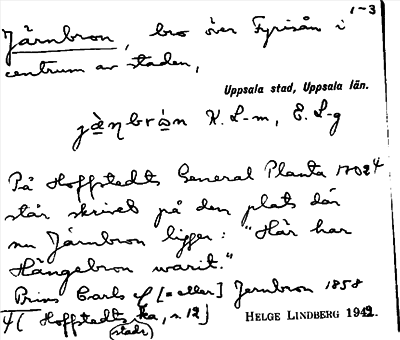 1-3
Järnbron, bro över Fyrisån i
centrum av staden,
Uppsala stad, Uppsala län.
jæ̀ŋbròn K. L-m, E. L-g
På Hoffstedts General Planta 1702 4
står skrivet på den plats där
nu Järnbron ligger: "Här har
Hängebron warit."
Prins Carls ɫ [= eller] Jernbron 1858
4( Hoffstedts ka, s. 12)
stads
HELGE LINDBERG 1942.